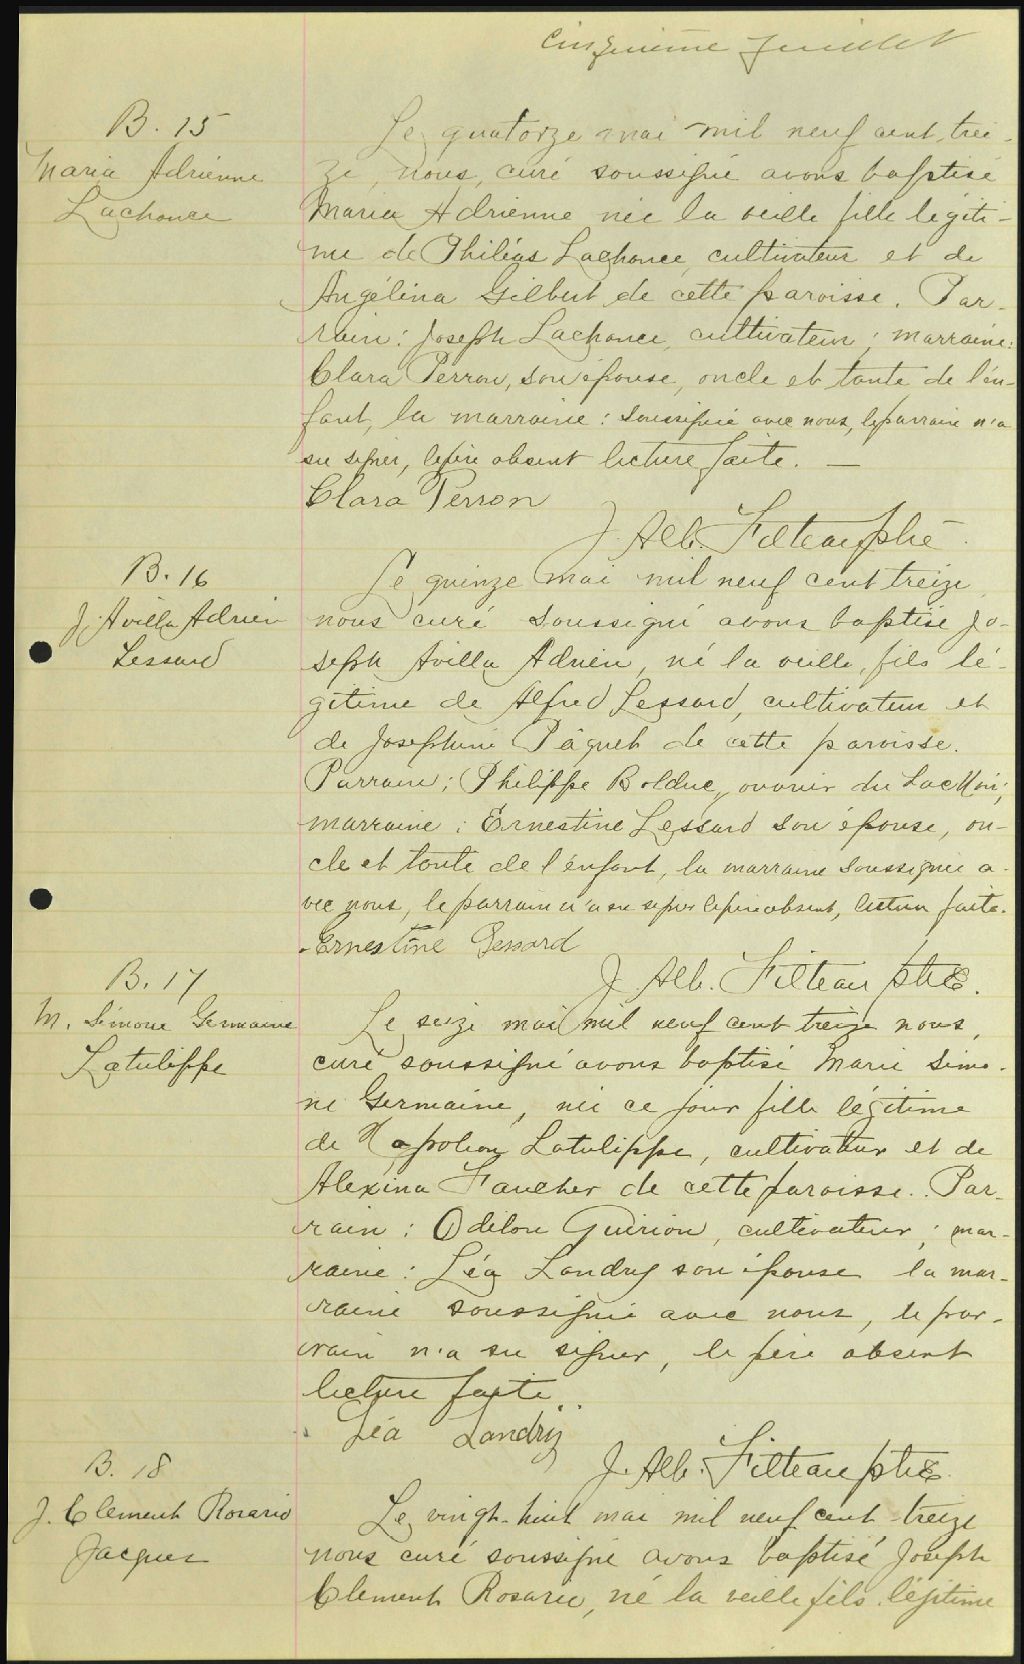 Cinquième feuillet
B. 15
Maria Adrienne
Lachance
Le quatorze mai mil neuf cent trei-
ze, nous, curé soussigné avons baptisé
Maria Adrienne née la veille fille légiti-
me de Philéas Lachance, cultivateur et de
Angélina Gilbert de cette paroisse. Par-
rain: Joseph Lachance, cultivateur; marraine:
Clara Perron, son épouse, oncle et tante de l'en-
fant, la marraine: soussignée avec nous, le parrain n'a
su signer, le père absent lecture faite. —
Clara Perron
J. Alb. Filteau ptre.
B. 16
J. Avilla Adrien
Lessard
Le quinze mai mil neuf cent treize,
nous curé soussigné avons baptisé Jo-
seph Avilla Adrien, né la veille, fils lé-
gitime de Alfred Lessard, cultivateur et
de Josephine Pâquet de cette paroisse.
Parrain; Philippe Bolduc, ouvrier du Lac Noir,
marraine: Ernestine Lessard son épouse, on-
cle et tante de l'enfant, la marraine soussignée a-
vec nous, le parrain n'a su signer le père absent, lecture faite.
Ernestine Lessard
J. Alb. Filteau ptre.
B. 17
M. Simone Germaine
Latulippe
Le seize mai mil neuf cent treize nous,
curé soussigné avons baptisé Marie Simo-
ne Germaine, née ce jour fille légitime
de Napoleon Latulippe, cultivateur et de
Alexina Faucher de cette paroisse. Par-
rain: Odilon Guirion, cultivateur; mar-
raine: Léa Landry son épouse la mar-
raine soussignée avec nous, le par-
rain n'a su signer, le père absent
lecture faite.
Léa Landry
J. Alb. Filteau ptre.
B. 18
J. Clement Rosario
Jacques
Le vingt-huit mai mil neuf cent treize
nous curé soussigné avons baptisé Joseph
Clement Rosario, né la veille fils légitime